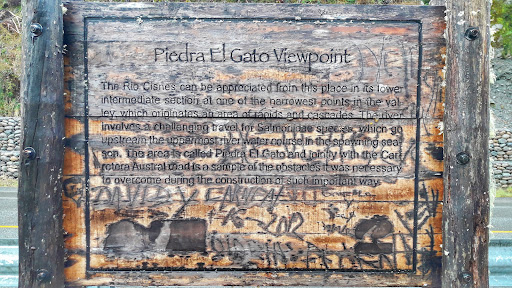 Piedra El Gato Viewpoint
The Rio Cisnes can be appreciated from this place in its lower
intermediate section at one of the narrowest points in the val-
ley, which originates an area of rapids and cascades. The river
involves a challenging travel for Salmonidae species, which go
upstream the uppermost river water course in the spawning sea-
son. The area is called Piedra El Gato and jointly with the Carr
retera Austral road is a sample of the obstacles it was necessary
to overcome during the construction of such important way.